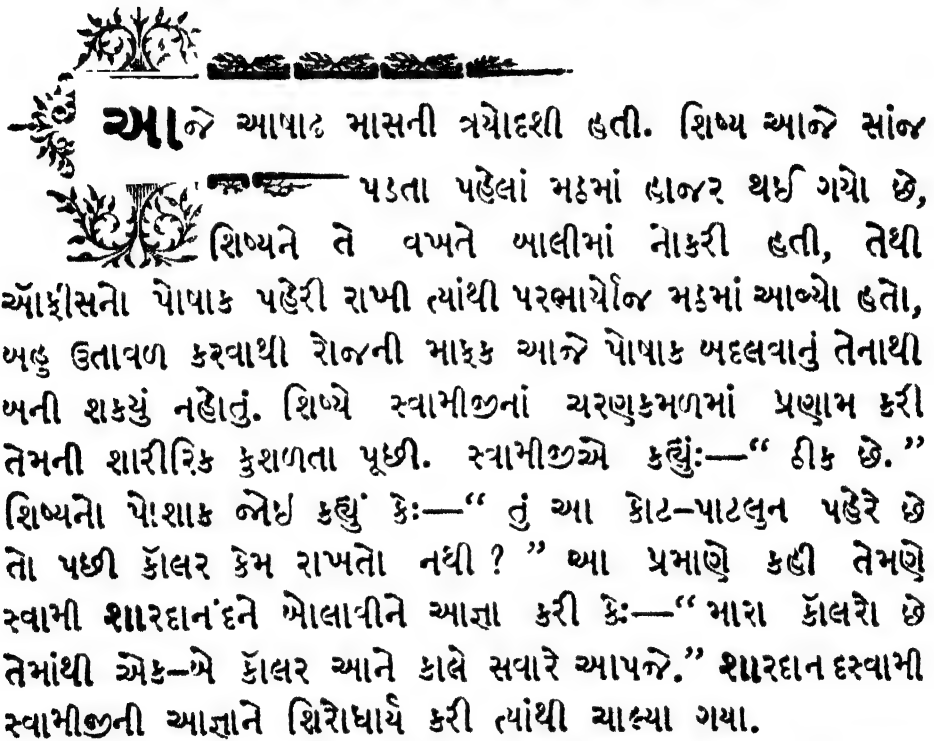 આજે આષાઢ માસની ત્રયોદશી હતી. શિષ્ય આજે સાંજ
પડતા પહેલાં મઠમાં હાજર થઈ ગયો છે,
શિષ્યને તે વખતે બાલીમાં નોકરી હતી, તેથી
ઑફીસનો પોષાક પહેરી રાખી ત્યાંથી પરભાર્યોજ મઠમાં આવ્યો હતો,
બહુ ઉતાવળ કરવાથી રોજની માફક આજે પોષાક બદલવાનું તેનાથી
બની શકયું નહોતું. શિષ્યે સ્વામીજીનાં ચરણકમળમાં પ્રણામ કરી
તેમની શારીરિક કુશળતા પૂછી. સ્વામીજીએ કહ્યુંઃ—“ ઠીક છે.”
શિષ્યનો પોશાક જોઇ કહ્યું કેઃ—“ તું આ કોટ–પાટલુન પહેરે છે
તો પછી કૅાલર કેમ રાખતો નથી ? ” આ પ્રમાણે કહી તેમણે
સ્વામી શારદાનંદને બોલાવીને આજ્ઞા કરી કેઃ—“ મારા કૅાલરો છે
તેમાંથી એક–બે કૅાલર આને કાલે સવારે આપજે.” શારદાનદસ્વામી
સ્વામીજીની આજ્ઞાને શિરોધાર્ય કરી ત્યાંથી ચાલ્યા ગયા.